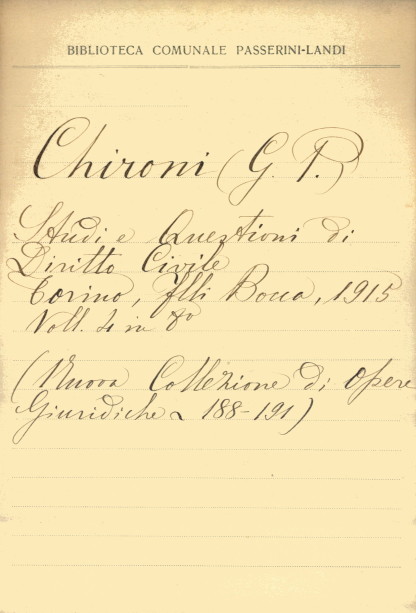 BIBLIOTECA COMUNALE PASSERINI-LANDI
Chironi (G. P.)
Studi e Questioni di
Diritto Civile
Torino, flli Bocca, 1915
Voll. 4 in 8°
(Nuova Collezione di Opere
Giuridiche 188-191)